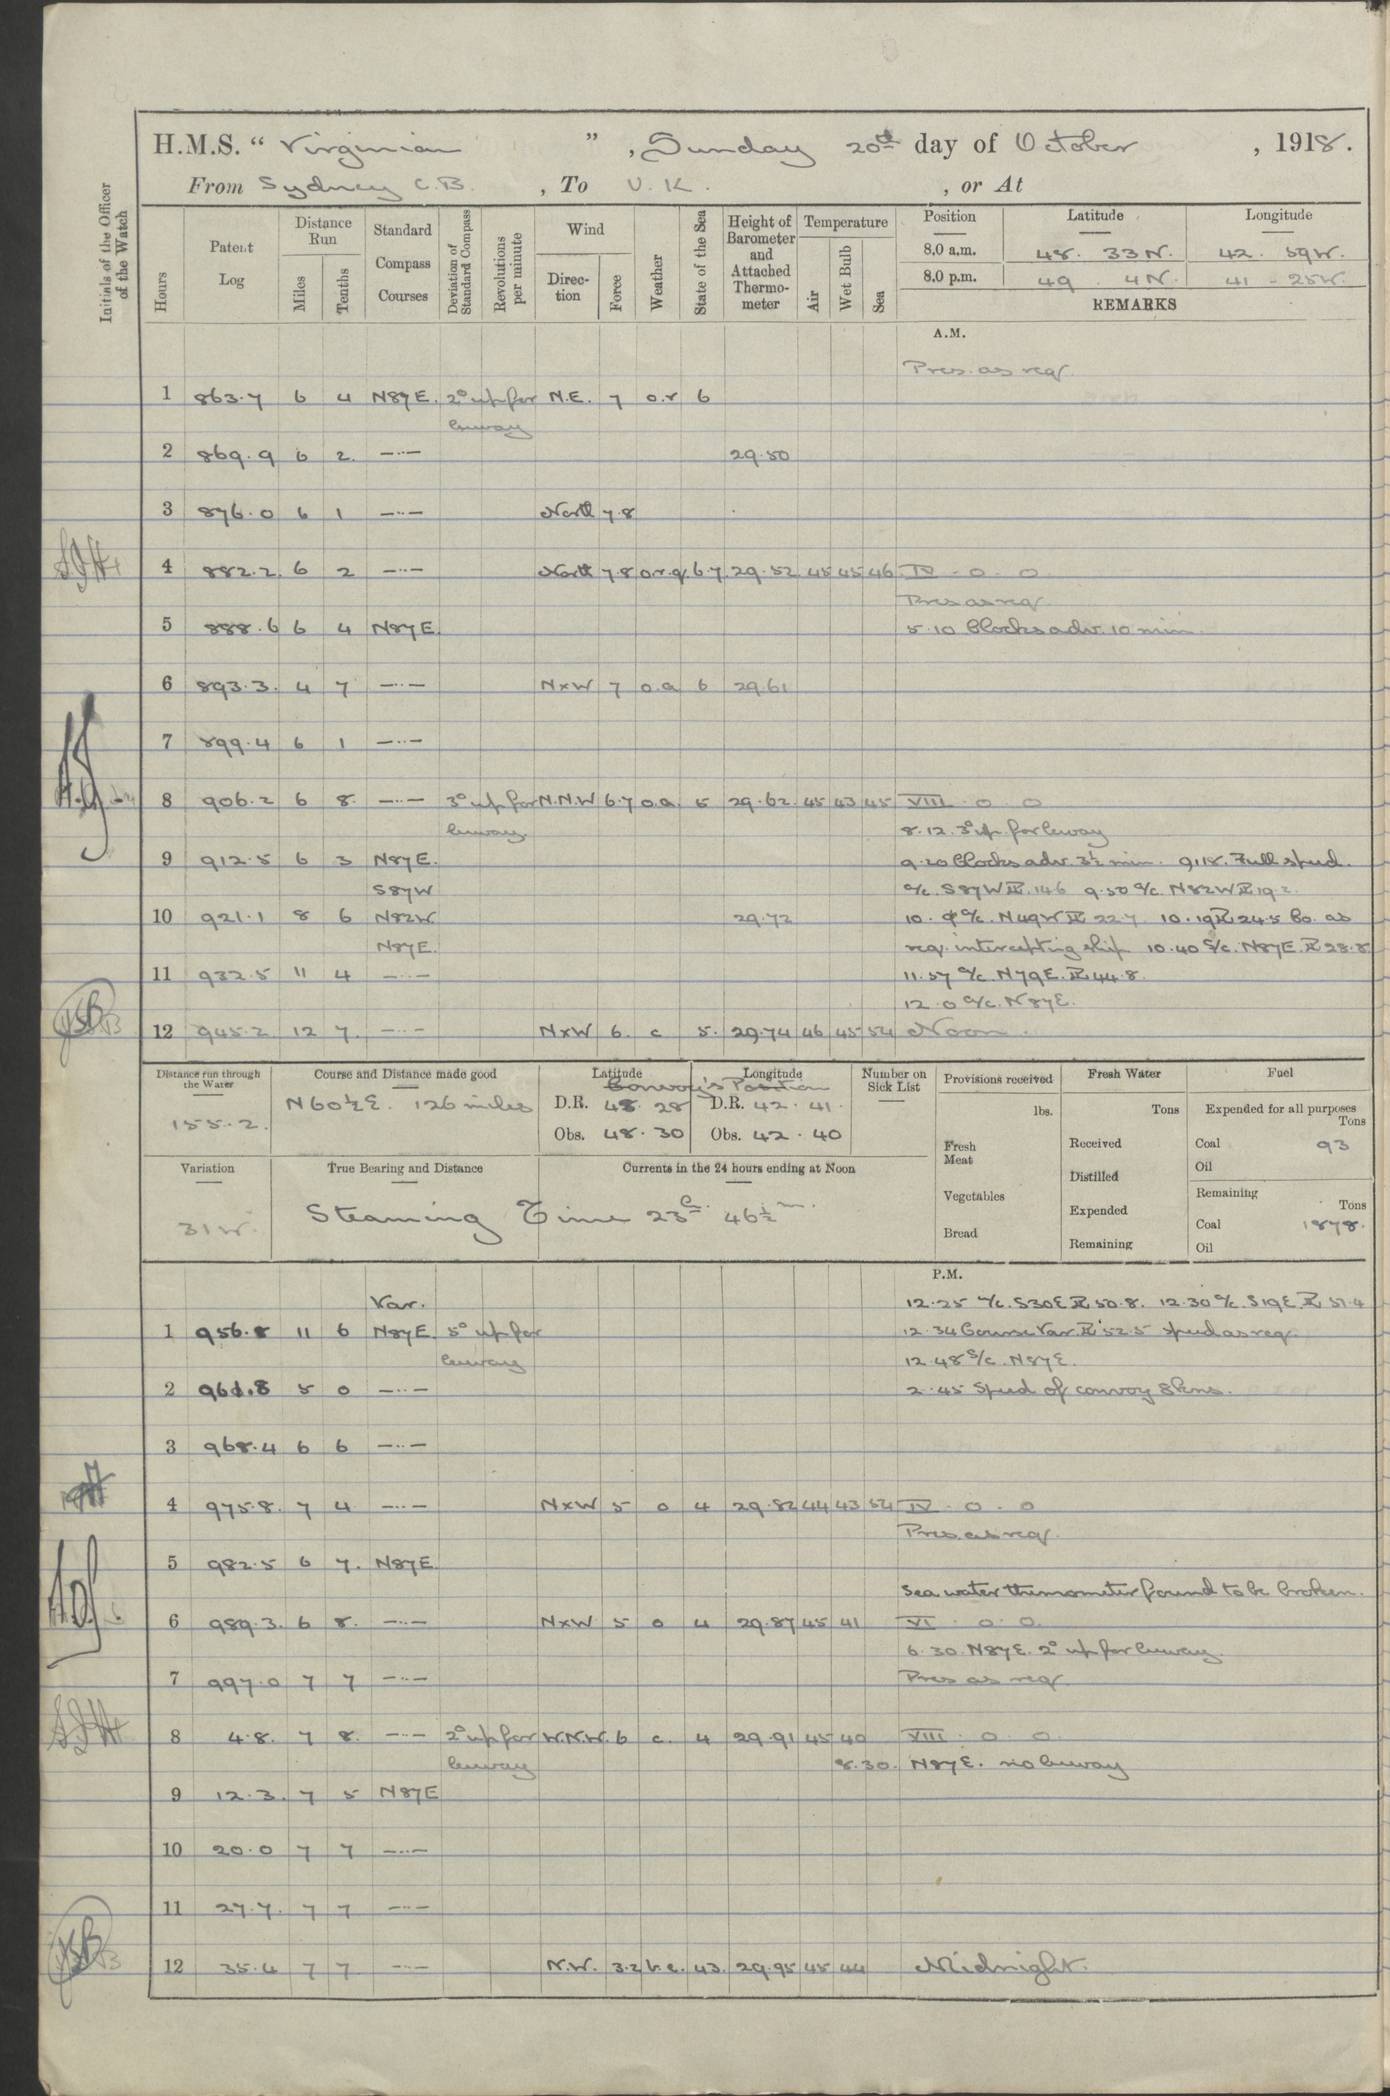 H.M.S. " Virginian " , Sunday 20th day of October , 1918.
From Sydney C.B. , To U.K. , or At
Initials of the Officer of the Watch
Hours Patent Log Distance Run Miles Tenths Standard Compass Courses Deviation of Standard Compass Revolutions per minute Wind Direction Force Weather State of the Sea Height of Barometer and Attached Thermometer Temperature Air Wet Bulb Sea Position Latitude Longitude
8.0 a.m. 48. 33 N. 42. 59 W.
8.0 p.m. 49 4 N. 41 - 25 W.
REMARKS
A.M.
Pres. as req.
1 863.7 6 4 N87E. 2° up for N.E. 7 o.r 6
leeway
2 869.9 6 2. —..— 29.50
3 876.0 6 1 —..— North 7.8
4 882.2 6 2 —..— North 7.8 o.r.q. 6.7 29.52 45 45 46 IV . o . o
Pres as req.
5 888.6 6 4 N87E. 5.10 Clocks adv. 10 min.
6 893.3. 4 7 —..— NxW 7 o.q 6 29.61
7 899.4 6 1 —..—
8 906.2 6 8. —..— 3° up for N.N.W 6.7 o.q. 5 29.62. 45 43 45 VIII . o . o
leeway. 8.12. 3° up for leeway
9 912.5 6 3 N87E. 9.20 Clocks adv. 3½ min. 9.18. Full speed.
S87W a/c. S87W PL 14.6 9.50 a/c. N82W PL 19.2.
10 921.1 8 6 N82W 29.72 10. a/c. N49W PL 22.7 10.19 PL 24.5 Co. as
N87E. req. intercepting ship 10.40 S/c. N87E. PL 28.8
11 932.5 11 4 —..— 11.57 a/c. N79E. PL 44.8.
12.0 a/c. N87E.
12 945.2 12 7. —..— NxW 6. c 5. 29.74 46 45 54 Noon.
Distance run through the Water Course and Distance made good Latitude Longitude Number on Sick List Provisions received Fresh Water Fuel
Convoy's Position
155.2. N60½E. 126 miles D.R. 48. 28 D.R. 42. 41.
Obs. 48. 30 Obs. 42. 40
lbs. Tons Expended for all purposes Tons
Fresh Meat Received Coal 93
Distilled Oil
Variation True Bearing and Distance Currents in the 24 hours ending at Noon
31 W. Steaming Time 23h. 46½m.
Vegetables Expended Remaining Tons
Coal 1878.
Bread Remaining Oil
P.M.
Var. 12.25 a/c. S30E PL 50.8. 12.30 a/c. S19E PL 51.4
1 956.8 11 6 N87E. 5° up for 12.34 Course Var. PL 52.5 speed as req.
leeway 12.48 S/c. N87E.
2 961.8 5 0 —..— 2.45 Speed of convoy 8 kns.
3 968.4 6 6 —..—
4 975.8. 7 4. —..— NxW 5 o 4 29.82 44 43 54 IV . o . o
Pres. as req.
5 982.5 6 7. N87E.
Sea water thermometer found to be broken.
6 989.3. 6 8. —..— NxW 5 o 4 29.87 45 41 VI . o . o.
6.30. N87E. 2° up for leeway.
7 997.0 7 7 —..— Pres as req.
8 4.8. 7 8. —..— 2° up for W.N.W. 6 c. 4 29.91 45 40 VIII . o . o
leeway 8.30. N87E. no leeway
9 12.3. 7 5 N87E
10 20.0 7 7 —..—
11 27.7. 7 7 —..—
12 35.4 7 7 —..— N.W. 3.2 b.c. 43. 29.95 45 44 Midnight.